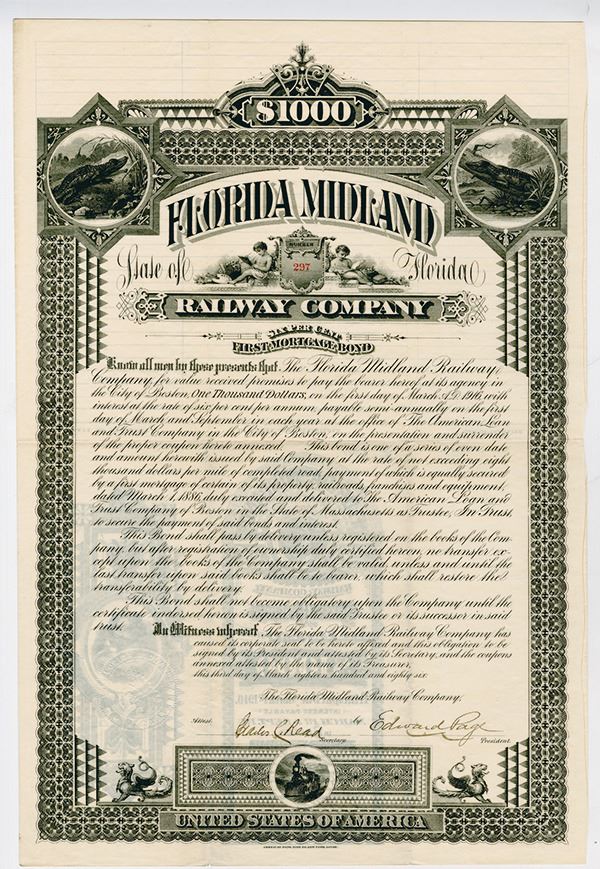 $1000
FLORIDA MIDLAND
NUMBER
297
State of Florida
RAILWAY COMPANY
SIX PER CENT
FIRST MORTGAGE BOND
Know all men by these presents that The Florida Midland Railway
Company, for value received promises to pay the bearer hereof at its agency in
the City of Boston, One Thousand Dollars, on the first day of March A.D. 1916, with
interest at the rate of six per cent per annum, payable semi-annually on the first
day of March and September in each year at the office of The American Loan
and Trust Company in the City of Boston, on the presentation and surrender
of the proper coupon hereto annexed. This bond is one of a series of even date
and amount herewith issued by said Company at the rate of not exceeding eight
thousand dollars per mile of completed road, payment of which is equally secured
by a first mortgage of certain of its property, railroads, franchises and equipment,
dated March 1, 1886, duly executed and delivered to The American Loan and
Trust Company of Boston in the State of Massachusetts as Trustee, In Trust,
to secure the payment of said bonds and interest.
This Bond shall pass by delivery unless registered on the books of the Com-
pany, but after registration of ownership duly certified hereon, no transfer ex-
cept upon the books of the Company shall be valid, unless and until the
last transfer upon said books shall be to bearer, which shall restore the
transferability by delivery.
This Bond shall not become obligatory upon the Company until the
certificate indorsed hereon is signed by the said Trustee or its successor in said
trust.
In Witness whereof, The Florida Midland Railway Company has
caused its corporate seal to be hereto affixed and this obligation to be
signed by its President and attested by its Secretary, and the coupons
annexed attested by the name of its Treasurer,
this third day of March eighteen hundred and eighty six
The Florida Midland Railway Company,
Attest by Edward Page
Secretary President
UNITED STATES OF AMERICA